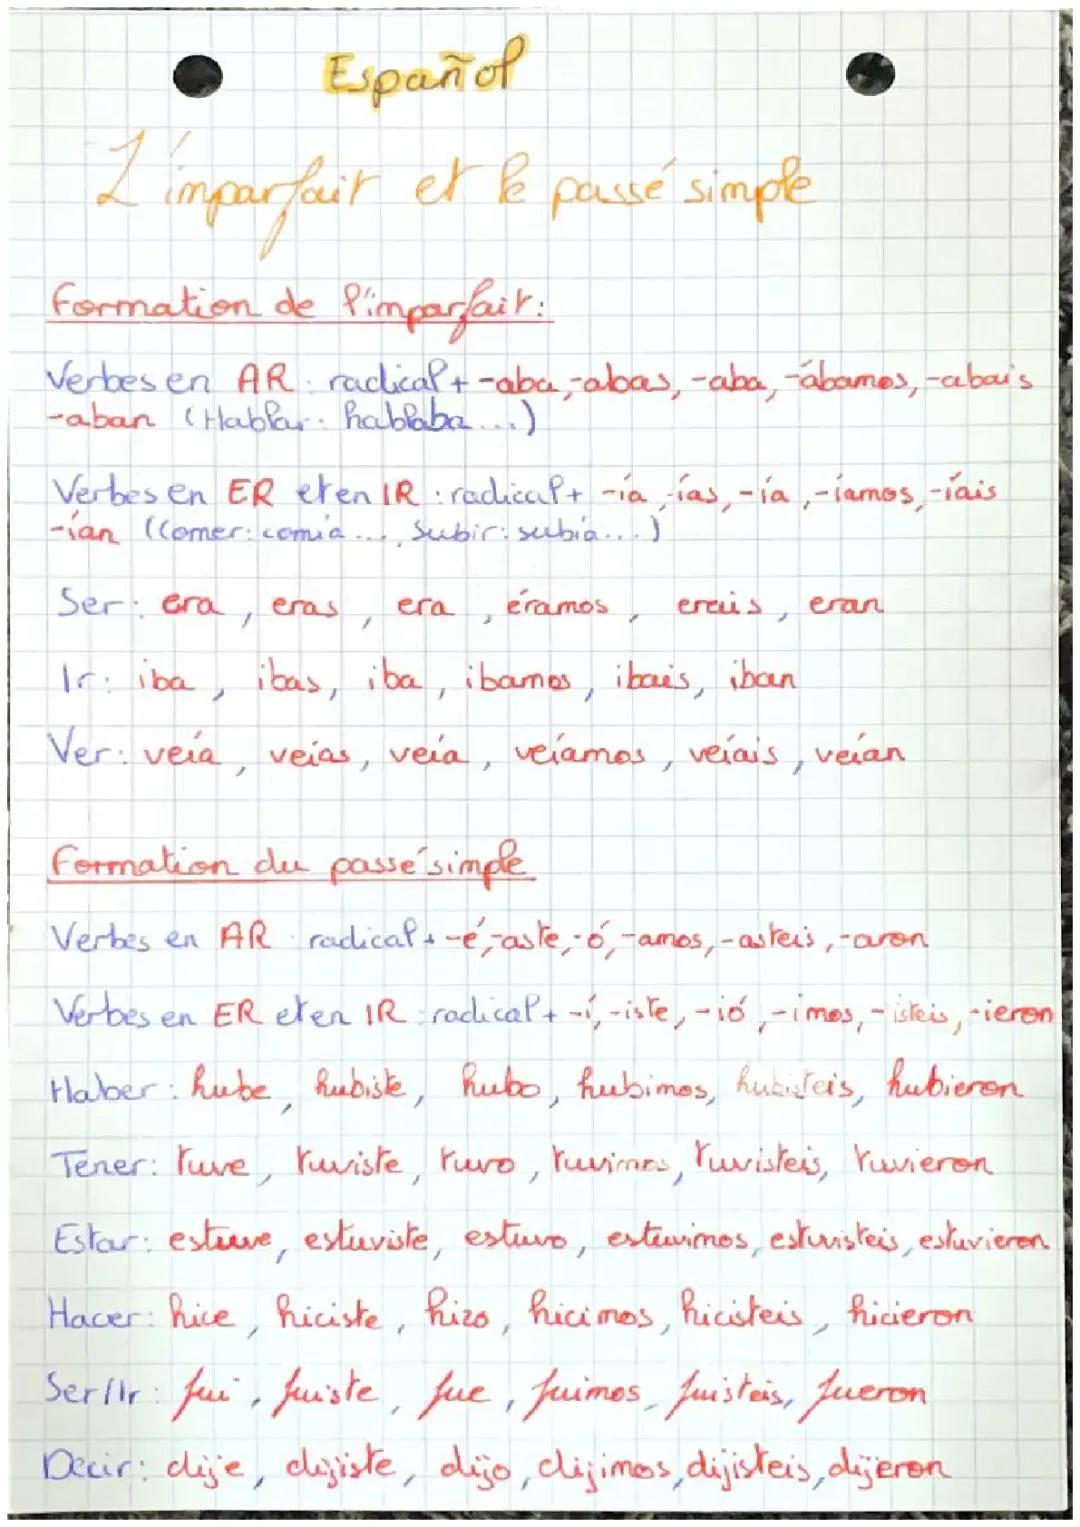 Español
L'imparfait et le passé simple
Formation de l'imparfait:
Verbes en AR : radical + -aba, -abas, -aba, -ábamos, -abais
-aban (Hablar: hablaba...)
Verbes en ER et en IR : radical + -ía, -ías, -ía, -íamos, -íais
-ían (Comer: comía..., Subir: subía...)
Ser: era, eras, era, éramos, erais, eran
Ir: iba, ibas, iba, ibamos, ibais, iban
Ver: veía, veías, veía, veíamos, veíais, veían
Formation du passé simple
Verbes en AR radical + -é, -aste, -ó, -amos, -asteis, -aron
Verbes en ER et en IR : radical + -í, -iste, -ió, -imos, -isteis, -ieron
Haber: hube, hubiste, hubo, hubimos, hubisteis, hubieron
Tener: tuve, tuviste, tuvo, tuvimos, tuvisteis, tuvieron
Estar: estuve, estuviste, estuvo, estuvimos, estuvisteis, estuvieron
Hacer: hice, hiciste, hizo, hicimos, hicisteis, hicieron
Ser/Ir: fui, fuiste, fue, fuimos, fuisteis, fueron
Decir: dije, dijiste, dijo, dijimos, dijisteis, dijeron